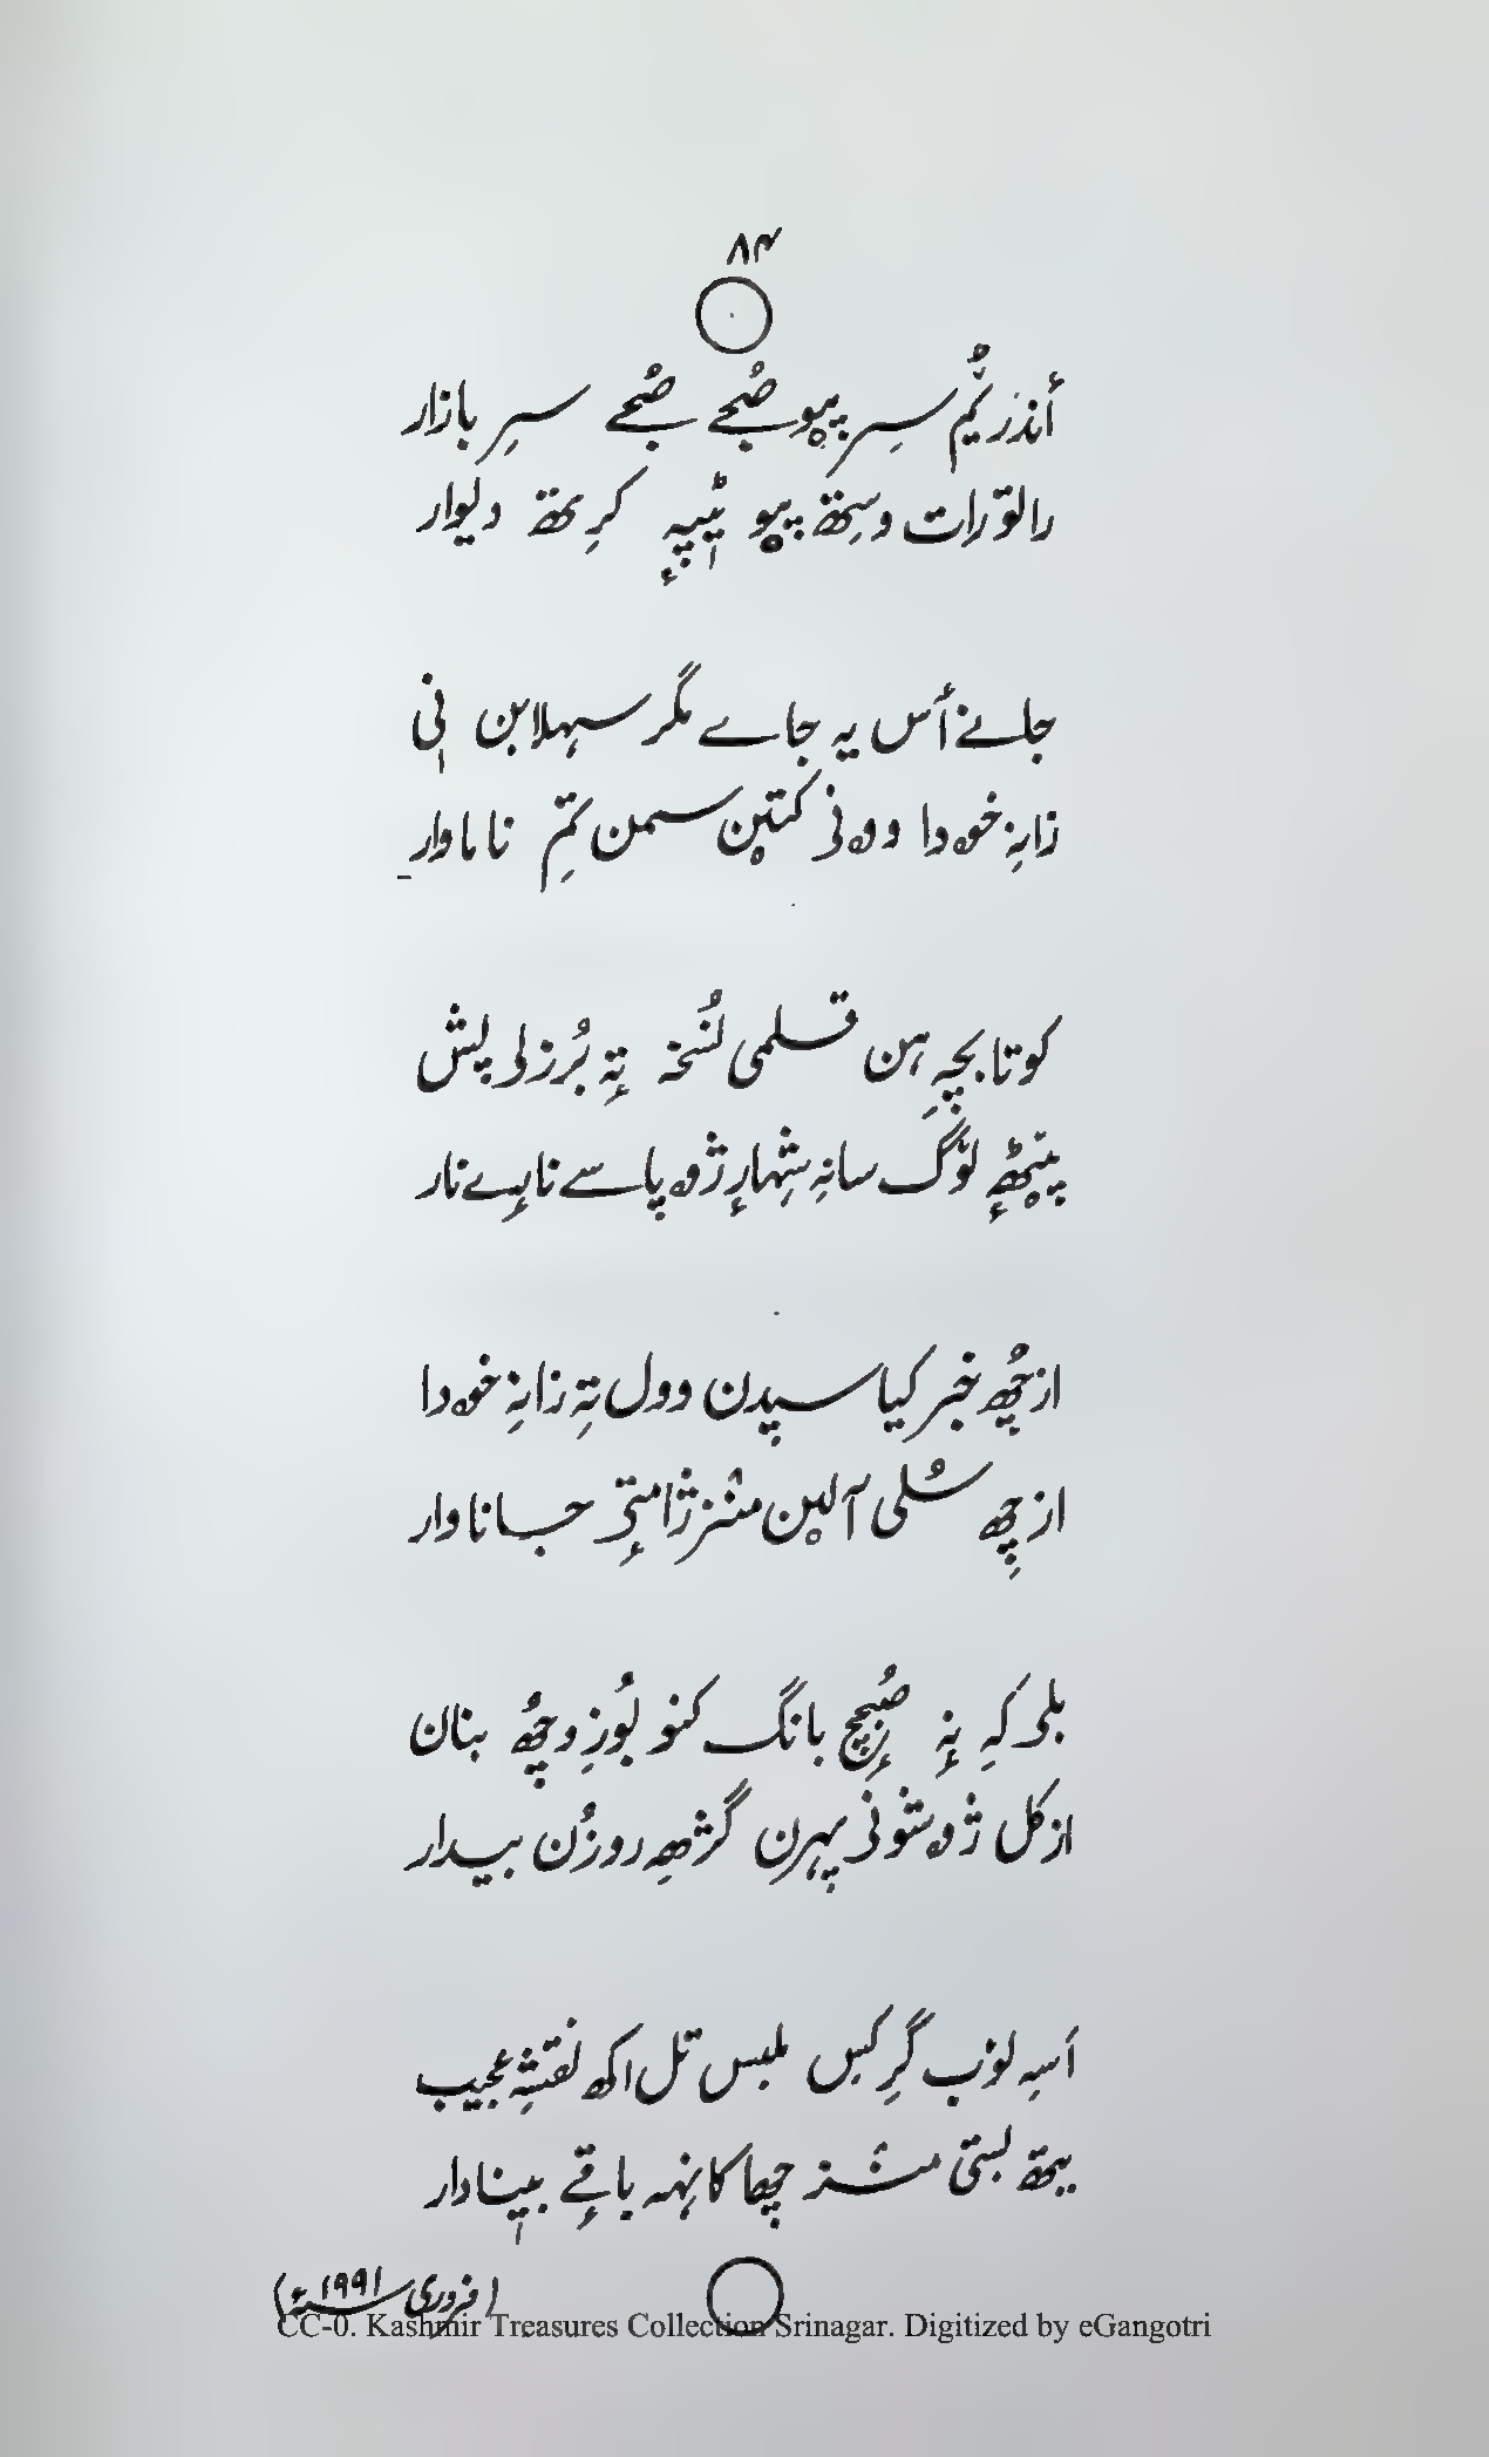 ۸۴
أندٕر یُٛم سِر پیوٚ صُحے صُحے سرِ بازار
راتؤ رات وسِتھ پیوٚ ٹٕپہٕ کرِتھ دیوار
جانے أس یہ جاے مگر سہلابن نٕی
زانہِ خۄدا وۄنی کتیٚن سمن تِم ناناوار
کوتا بچہِ ہن قلمی نُسخہ تہٕ بُرزلی پش
پیٚٹھٕ لوٚگ سانہِ شہارٕ ژۄپاسے نابہٕے نار
از چھُ خبر کیا سپدن وول تہِ زانہِ خۄدا
از چھِ سُلی آلیٚن منٛز ژامتۍ جاناوار
بلہ کہِ نہٕ صُبحٕچ بانگ کنو بُوزِ و چھُ بنان
از کل ژۄشوٚنی پہرن گژھہِ روزُن بیدار
اَسہِ لوٚب گرِ کس ملبس تل اکھ نقشہِ عجیب
یتھ بستی منٛز چھا کانٛہہ باقٕے بینادار
(فروری ۱۹۹۱ء)
CC-0. Kashmir Treasures Collection Srinagar. Digitized by eGangotri